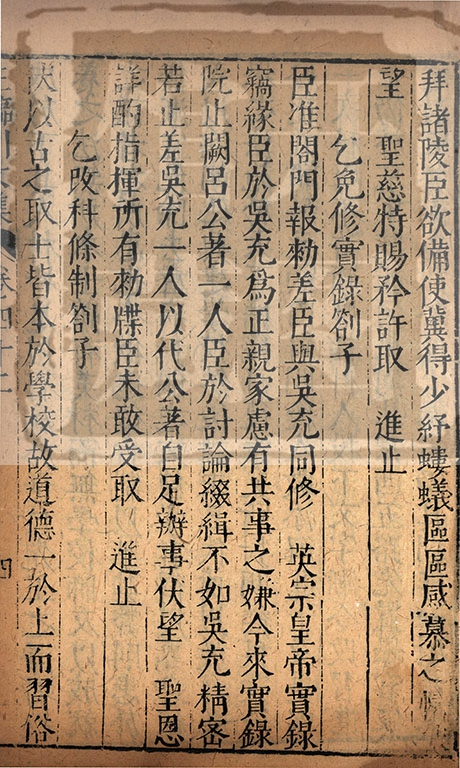 拜諸陵臣欲備使冀得少紓螻蟻區區感慕之情
望　聖慈特賜矜許取　進止
乞免修實錄劄子
臣准閤門報勑差臣與吳充同修　英宗皇帝實錄
竊緣臣於吳充爲正親家慮有共事之嫌今來實錄
院止闕呂公著一人臣於討論綴緝不如吳充精密
若止差吳充一人以代公著自足辦事伏望　聖恩
詳酌指揮所有勑牒臣未敢受取　進止
乞改科條制劄子
伏以古之取士皆本於學校故道德一於上而習俗
王臨川文集　卷四十二　四